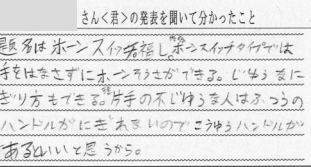 さん<君>の発表を聞いて分かったこと
題名はホーンスイッチ君福し。ホーンスイッチタイプでは
手をはなさずにホーンそうさができる。じゆうなに
ぎり方もできる。片手の不じゆうな人はふつうの
ハンドルがにぎれないのでこうゆうハンドルが
あるといいと思うから。